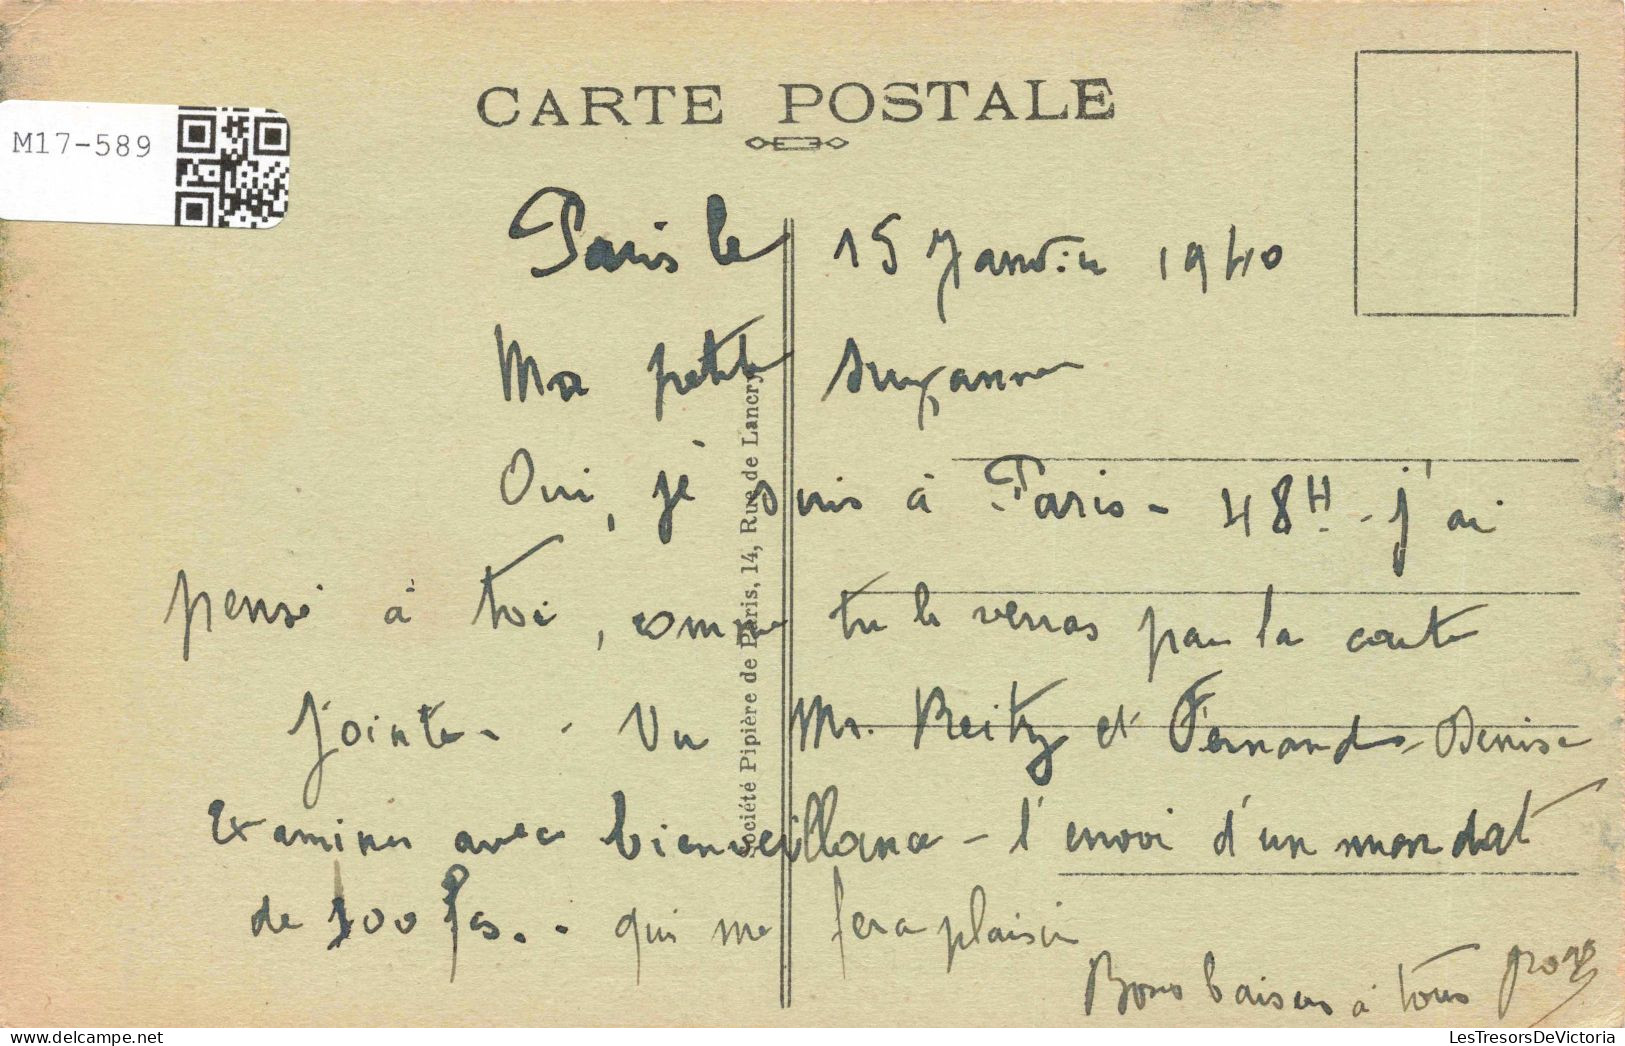 M17-589
CARTE POSTALE
Paris le 15 Janvier 1940
Ma petite Suzanne
Oui, je suis à Paris - 48H. - j'ai
pensé à toi, comme tu le verras par la carte
jointe - . Vu Mr. Reitz et Fernande - Denise
Examiner avec bienveillance - l'envoi d'un mandat
de 100 Fcs. . qui me fera plaisir
Bons baisers à tous
Société Pipière de Paris, 14, Rue de Lancry
LesTresorsDeVictoria